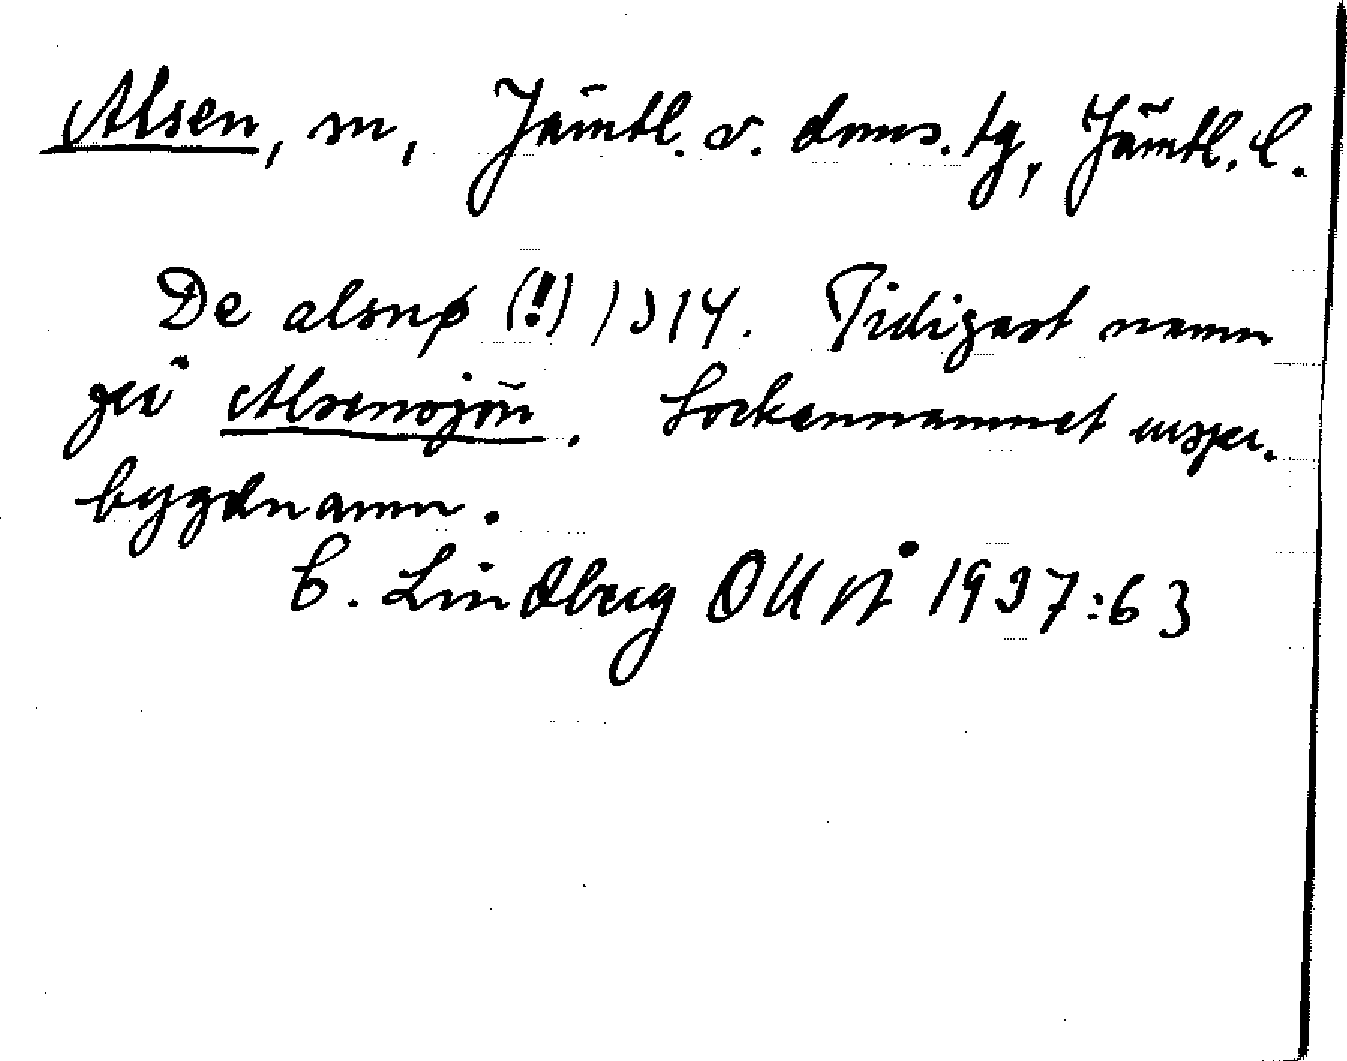 Alsen, sn, Jämtl. v. doms. tg, Jämtl. l.
De alsnø (!) 1314. Tidigast namn
på Alsensjön. Sockennamnet urspr.
bygdnamn.
C. Lindberg OUÅ 1937:63